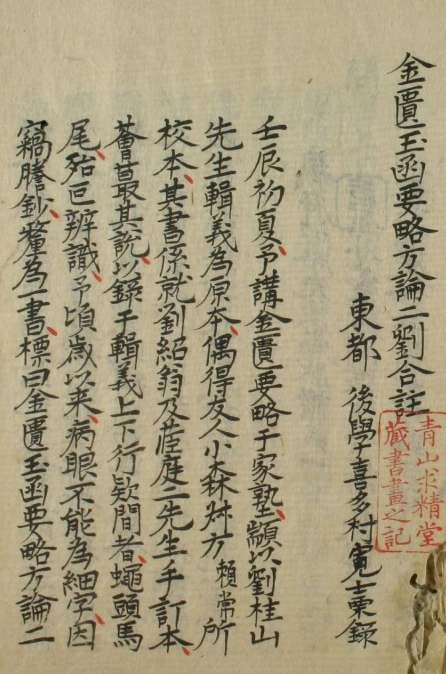 金匱玉函要略方論二劉合註
東都 後學喜多村寬士栗錄
青山求精堂
藏書畫之記
壬辰初夏予講金匱要略于家塾顓以劉桂山
先生輯義為原本偶得友人小森舛方賴常所
校本其書係就劉紹翁及茝庭二先生手訂本
薈蕞其說以錄于輯義上下行欵間者蠅頭馬
尾殆叵辨識予頃歲以来病眼不能為細字因
竊謄鈔釐為一書標曰金匱玉函要略方論二